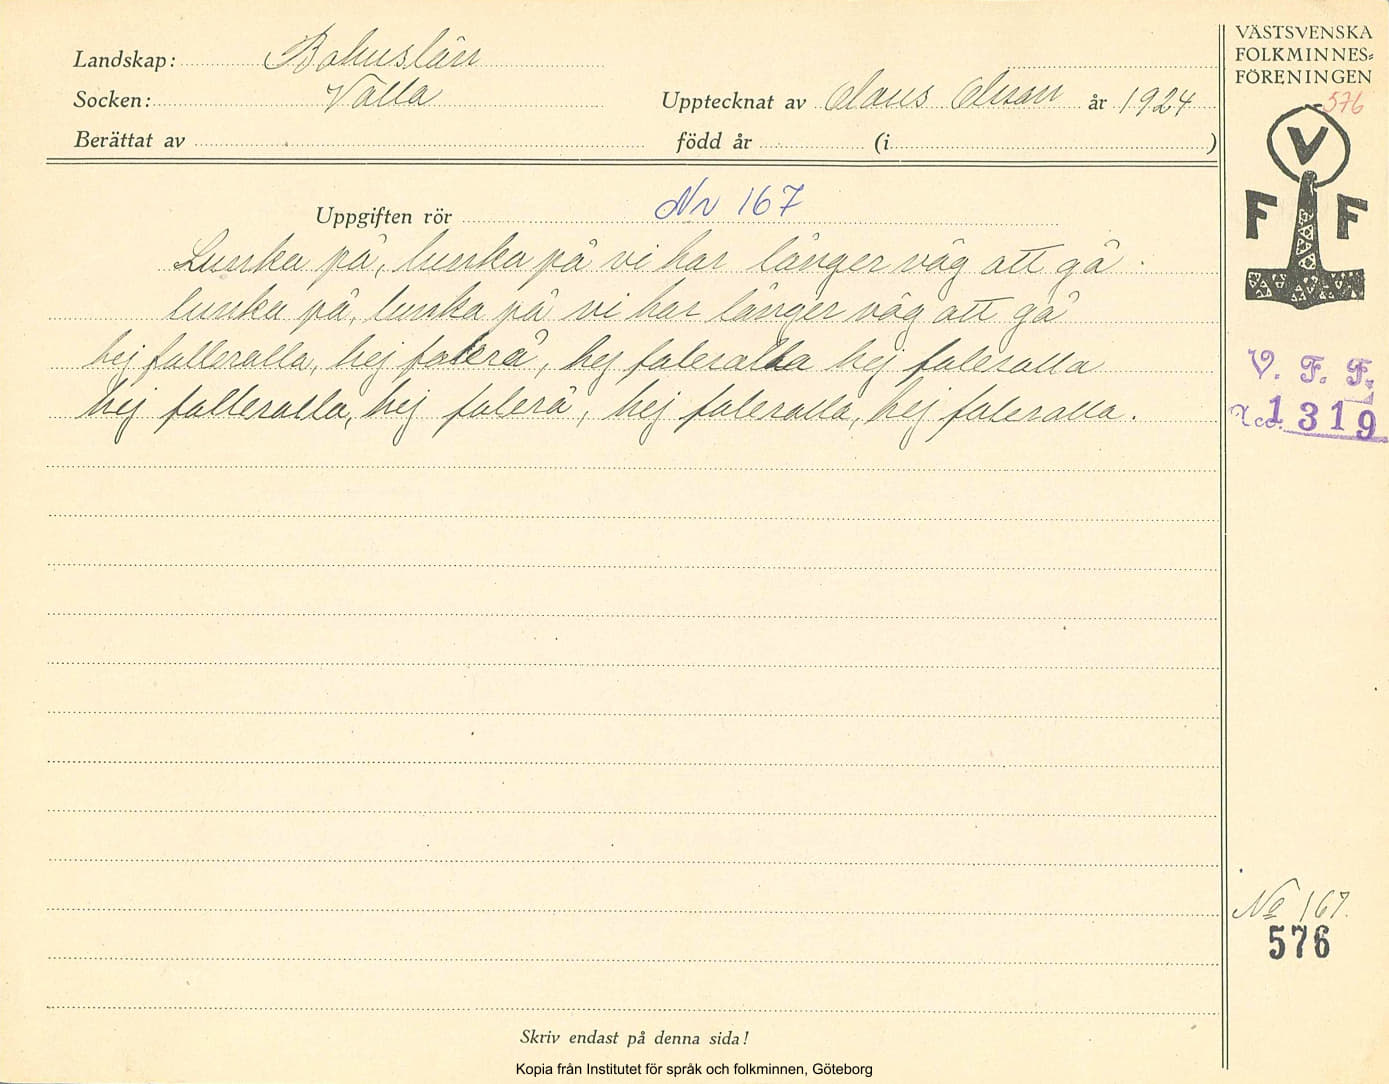 Landskap: Bohuslän
Socken: Valla
Upptecknat av Claus Olsson år 1924
Berättat av
född år (i )
Uppgiften rör Nr 167
Lunka på, lunka på vi har länger väg att gå.
lunka på, lunka på vi har länger väg att gå
hej falleralla, hej falerå, hej faleralla hej faleralla
hej falleralla, hej falerå, hej faleralla, hej faleralla.
Skriv endast på denna sida!
Kopia från Institutet för språk och folkminnen, Göteborg
VÄSTSVENSKA
FOLKMINNES-
FÖRENINGEN
576
V
F F
V. F. F.
Acc. 1319
No 167.
576